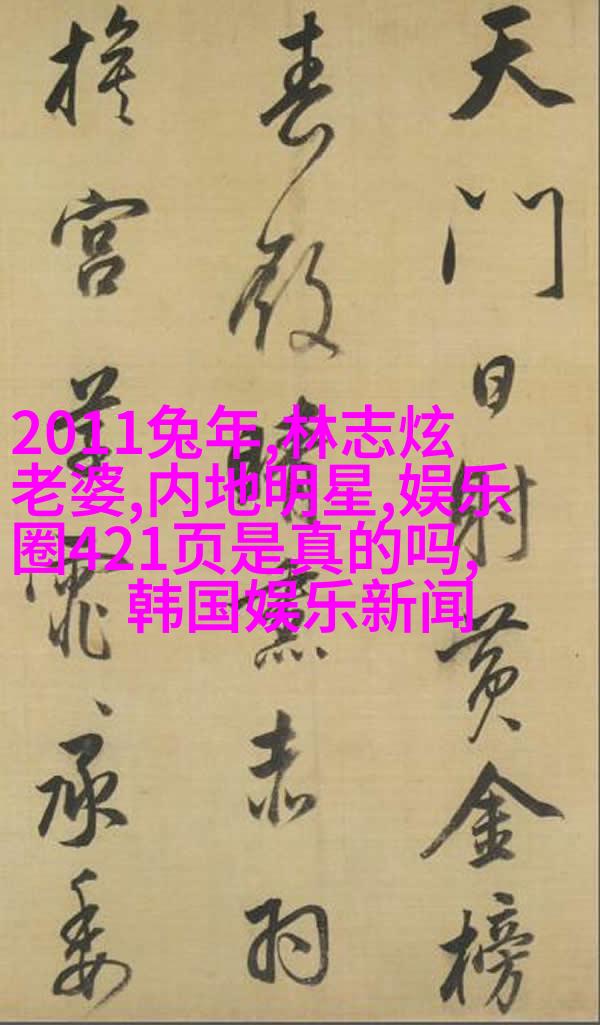 天門日射黃金榜
春殿晴熏赤羽
旗宮草霏々承委
2011兔年,林志炫
老婆,内地明星,娱乐
圈421页是真的吗,
韩国娱乐新闻